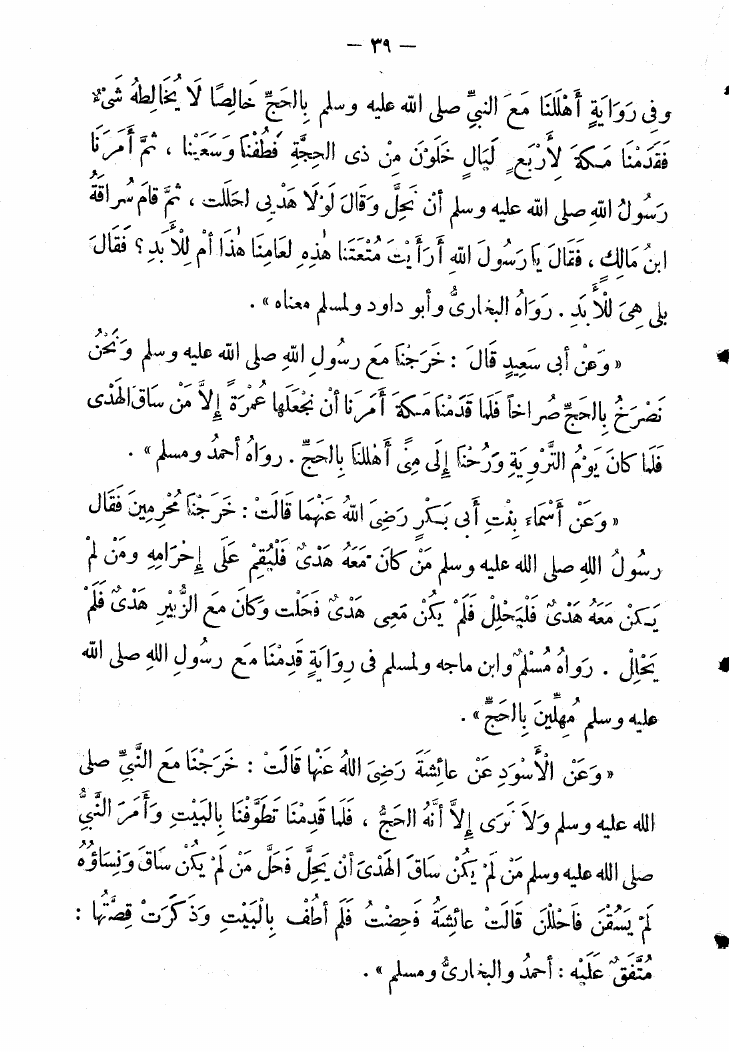 — ٣٩ —
وفِى رَوَايَةٍ أَهْلَلْنَا مَعَ النبيِّ صلى الله عليه وسلم بِالحَجِّ خَالِصًا لَا يُخَالِطهُ شَىْءٌ
فَقَدَمْنَا مَكةَ لِأَرْبَعِ لَيَالٍ خَلَوْنَ مِنْ ذى الحِجَّةِ فَطُفْنَا وَسَعَيْنا ، ثمَّ أَمَرَنَا
رَسُولُ اللهِ صلى الله عليه وسلم أنْ نَحِلَّ وَقالَ لَوْلَا هَدْيِى احَللت ، ثمَّ قامَ سُراقَةُ
ابنُ مَالِكٍ ، فَقَالَ يا رَسُولَ اللهِ أَرَأَيْتَ مُتْعَتَنا هٰذِهِ لِعَامِنَا هٰذَا أمْ لِلْأَبَدِ ؟ فَقَالَ
بلى هِىَ لِلْأَبَدِ . رَوَاهُ البخارىُّ وأبو داود ولمسلم معناه » .
« وَعَنْ أَبى سَعِيدٍ قَالَ : خَرَجْنَا مَع رسُولِ اللهِ صلى الله عليه وسلم وَنَحْنُ
نَصْرَخُ بِالحَجِّ صُرَاخاً فَلما قَدَمْنَا مَكةَ أَمَرَنا أنْ نجْعَلَها عُمْرَةً إِلاَّ مَنْ سَاقَ الهَدْىَ
فَلَمَا كانَ يَوْمُ التَّرْوِيَةِ وَرُحْنَا إِلَى مِنًى أَهْللنَا بِالحَجِّ . رواهُ أحمدُ ومسلم » .
« وَعَنْ أَسْمَاءَ بِنْتِ أَبى بَكْرٍ رَضِىَ اللهُ عَنْهُمَا قَالَتْ : خَرَجْنَا مُحْرِمِينَ فَقَال
رسولُ اللهِ صلى الله عليه وسلم مَنْ كانَ مَعَهُ هَدْىٌ فَلْيُقِمْ عَلَى إِحْرَامِهِ وَمَنْ لمْ
يَكنْ مَعَهُ هَدْىٌ فَلْيَحْلِلْ فَلَمْ يكُنْ مَعِى هَدْىٌ فَحَلَلت وَكَانَ مَعَ الزُّبَيْرِ هَدْىٌ فَلَمْ
يَحْلِلْ . رَواهُ مُسْلمٌ وابن ماجه ولمسلم فى رِوَايَةٍ قَدِمْنَا مَع رسولِ اللهِ صلى الله
عليه وسلم مُهِلِّينَ بِالحَجِّ » .
« وَعَنِ الْأَسْوَدِ عَنْ عائِشَةَ رَضِىَ اللهُ عَنْها قَالَتْ : خَرَجْنَا مَع النَّبيِّ صلى
الله عليه وسلم وَلاَ نَرَى إِلاَّ أنَّهُ الحَجُّ ، فَلَما قَدِمْنَا تَطَوَّفْنَا بِالبَيْتِ وَأَمَرَ النَّبيُّ
صلى الله عليه وسلم مَنْ لَمْ يَكُنْ سَاقَ الهَدْىَ أَنْ يَحِلَّ فَحَلَّ مَنْ لَمْ يَكُنْ سَاقَ وَنِسَاؤُهُ
لَمْ يَسُقْنَ فَاحْللْنَ قَالَتْ عائِشَةُ فَحِضْتُ فَلَم أَطُفْ بِالْبَيْتِ وَذَكَرَتْ قِصَّتَها :
مُتَّفَقٌ عَلَيْه : أحمدُ والبخارىُّ ومسلم » .